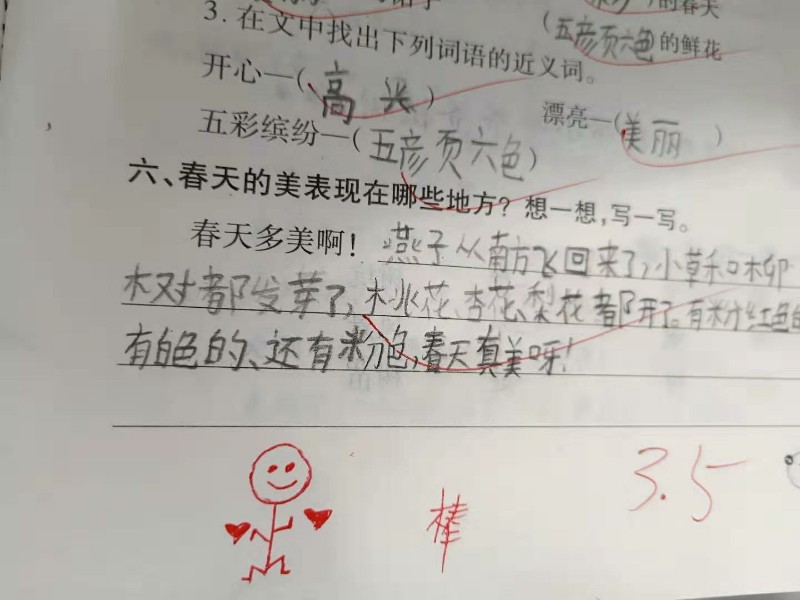 的春天
3.在文中找出下列词语的近义词。
(五彦页六色的鲜花
开心—(高兴)
漂亮—(美丽)
五彩缤纷—(五彦页六色)
六、春天的美表现在哪些地方?想一想,写一写。
春天多美啊!燕子从南方飞回来了,小草和柳
树都发芽了,桃花、杏花、梨花都开了。有粉红色的
有白色的、还有粉色,春天真美呀!
棒
3.5